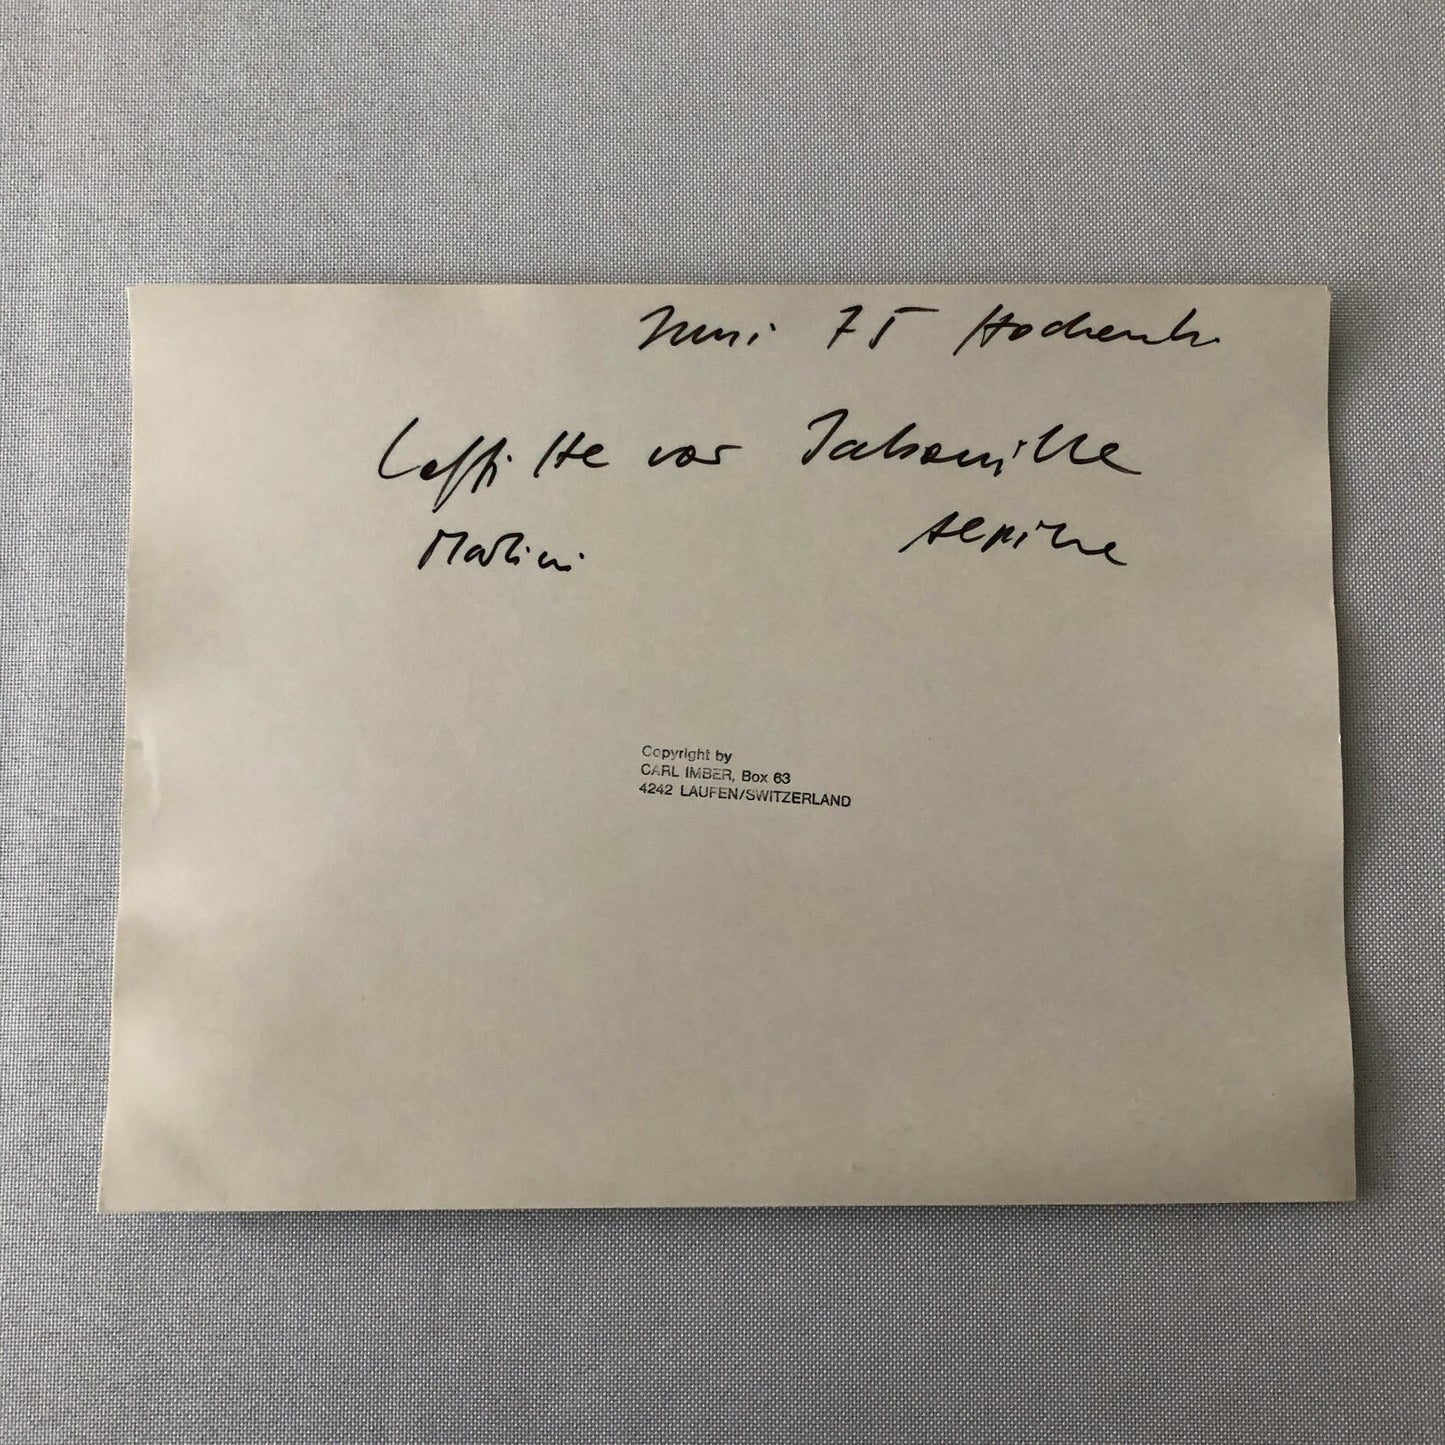 Juni 75 Hockenh.
Laffitte vor Jabouille
Martini Alpine
Copyright by
CARL IMBER, Box 63
4242 LAUFEN/SWITZERLAND